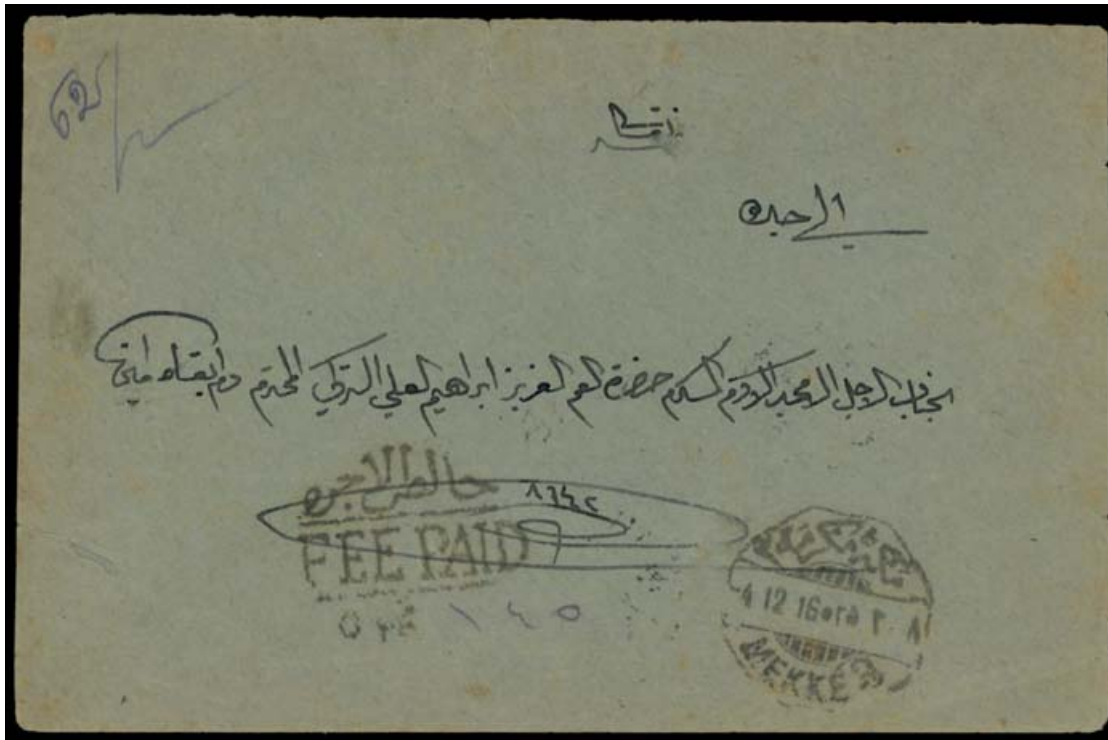 62
الى جده
لجناب الاجل الامجد الاكرم المكرم حضرة العم العزيز ابراهيم العلي التركي المحترم دام بقاه امين
٨٦٤٢
خالص الاجره
FEE PAID
١٤٥
مكة مكرمه
4 12 16
MEKKE